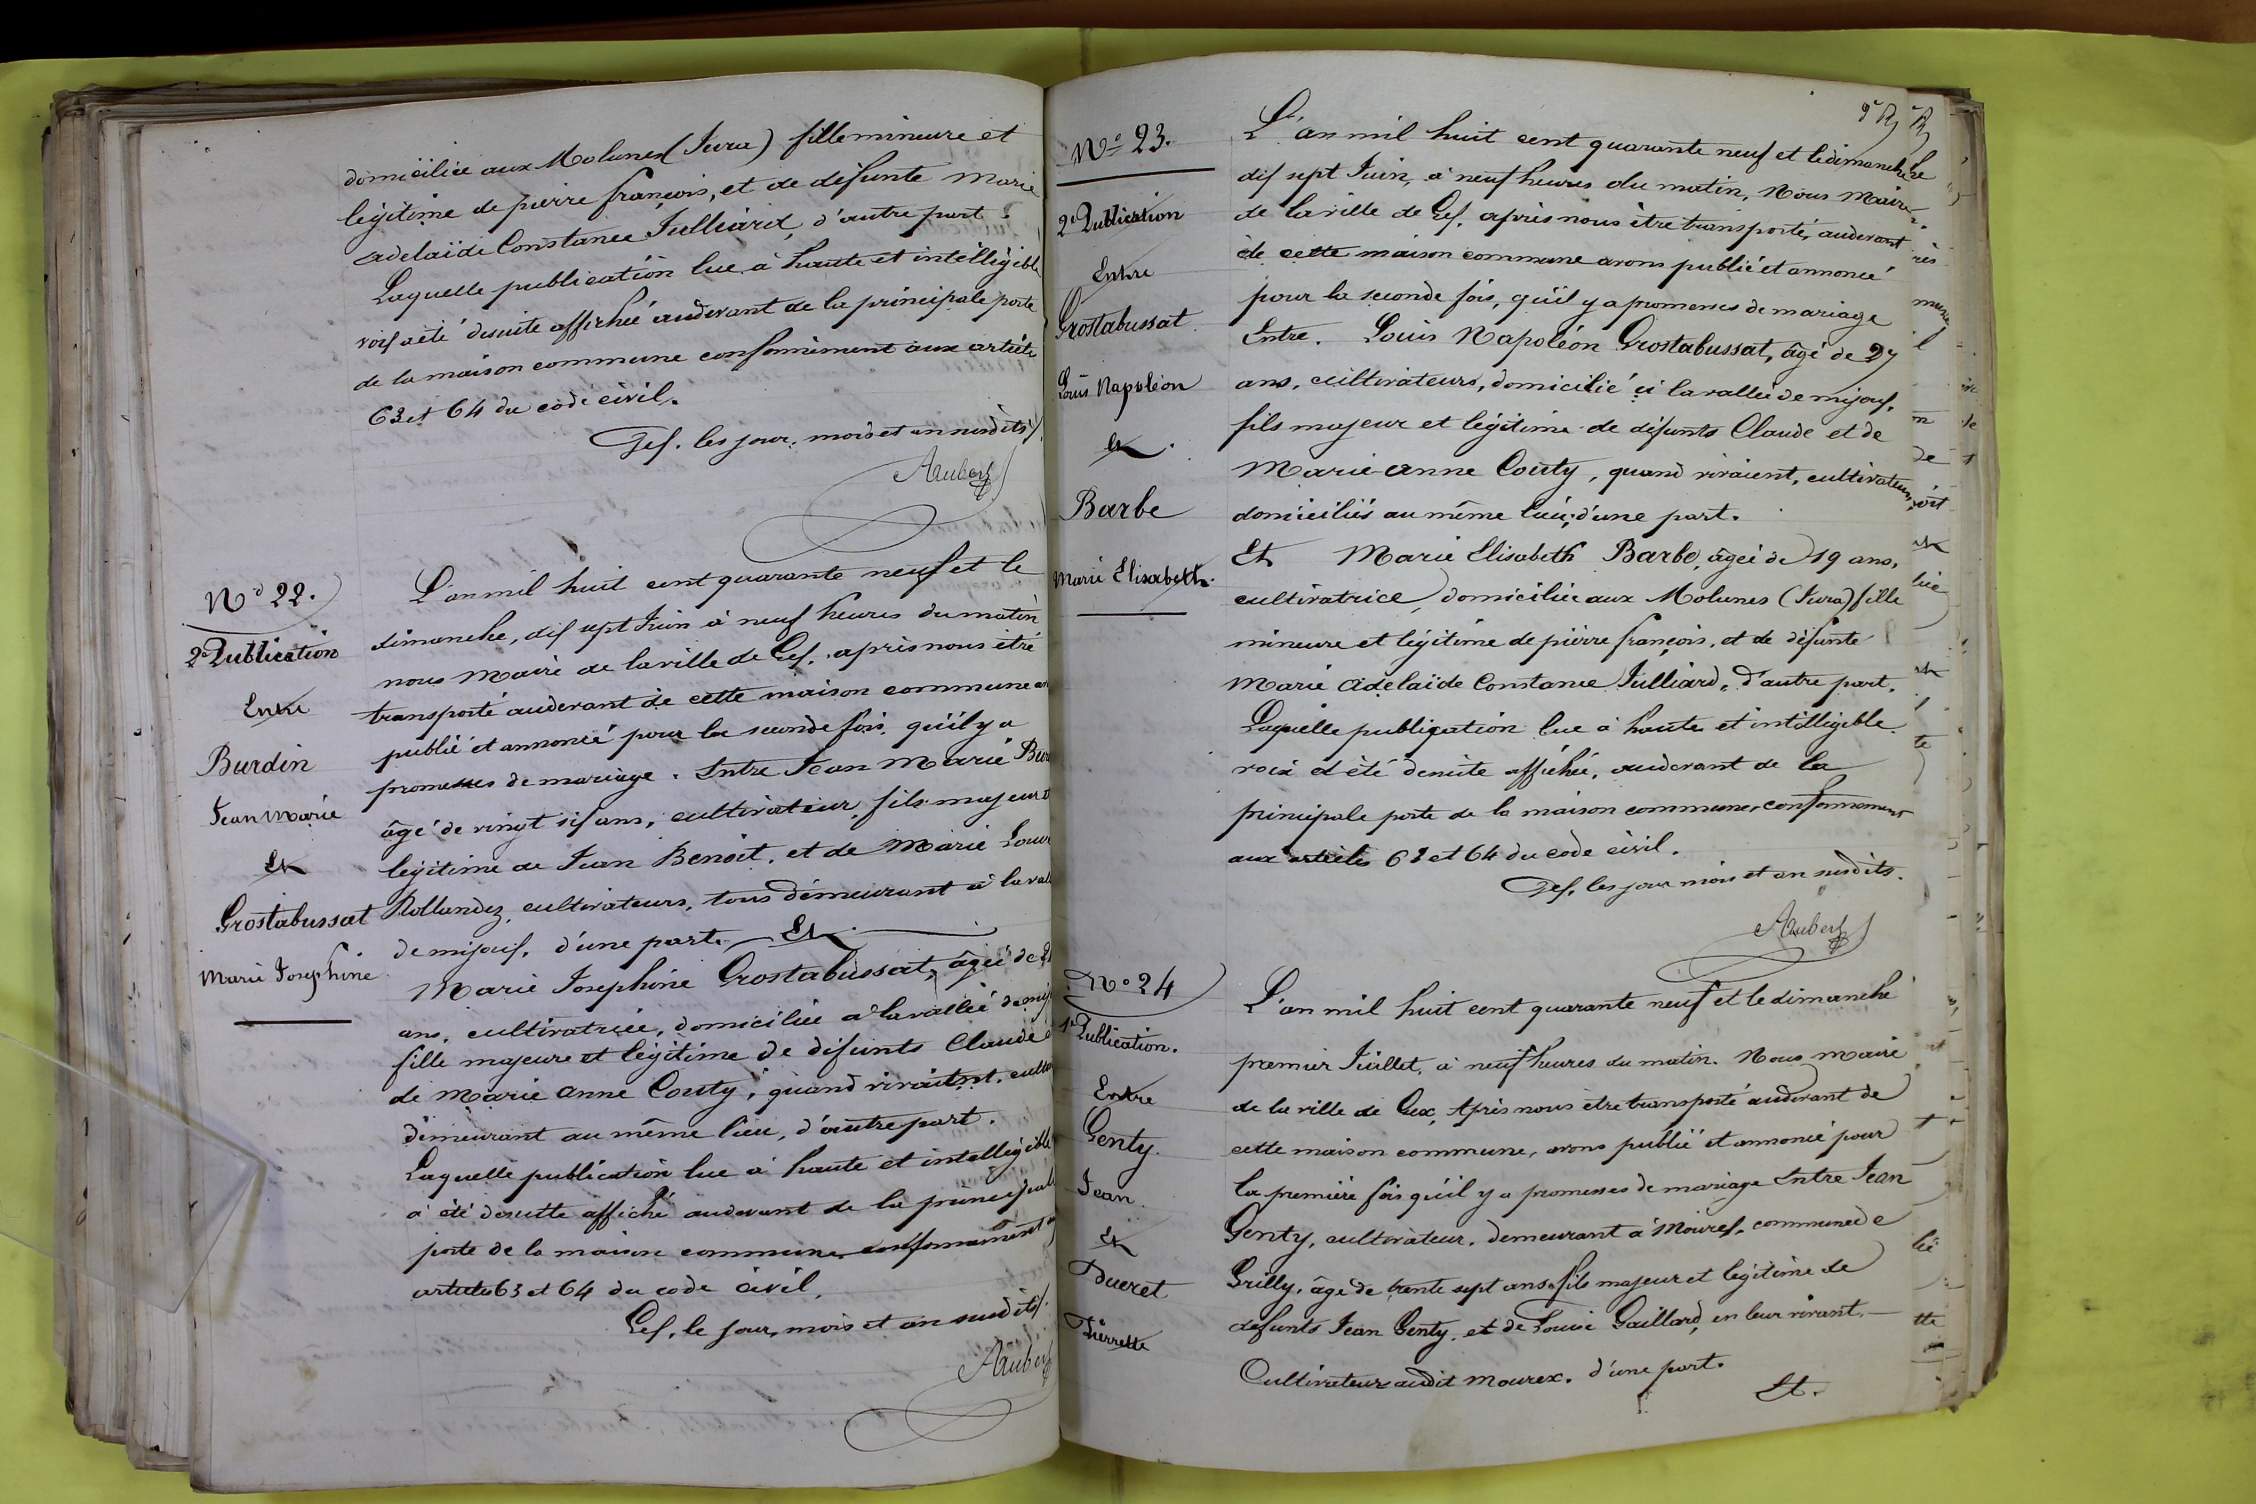 domiciliée aux Molunes (Jura) fille mineure et
légitime de pierre françois, et de défunte Marie
adelaïde Constance Julliard, d'autre part.
Laquelle publication lue à haute et intelligible
voix a été desuite affichée audevant de la principale porte
de la maison commune conformément aux article
63 et 64 du code civil.
Gex. les jour, mois et an susdits.
Aubert
N° 22.
2e Publication
Entre
Burdin
Jean Marie
Et
Grostabussat
Marie Josephine
L'an mil huit cent quarante neuf et le
dimanche, dix sept Juin à neuf heures du matin
nous Maire de la ville de Gex. après nous être
transporté audevant de cette maison commune
publié et annoncé pour la seconde fois, qu'il y a
promesses de mariage. Entre Jean Marie Bur
âgé de vingt six ans, cultivateur, fils majeur
légitime de Jean Benoit, et de Marie Loui
Rollandez, cultivateurs, tous demeurant à la val
de mijoux, d'une part. Et
Marie Josephine Grostabussat, âgée de 21
ans, cultivatrice, domiciliée à la vallée de mij
fille majeure et légitime de défunts Claude
de Marie Anne Couty, quand vivaient, cult
demeurant au même lieu, d'autre part.
Laquelle publication lue à haute et intelligible
a été desuitte affiché audevant de la principal
porte de la maison commune, conformément
articles 63 et 64 du code civil.
Gex, le jour, mois et an susdits.
Aubert
N° 23.
2e Publication
Entre
Grostabussat
Louis Napoléon
Et
Barbe
Marie Elisabeth.
L'an mil huit cent quarante neuf et le dimanche
dix sept Juin, à neuf heures du matin, Nous Maire
de la ville de Gex. après nous être transporté, audevant
de cette maison commune avons publié et annoncé
pour la seconde fois, qu'il y a promesses de mariage
Entre. Louis Napoléon Grostabussat, âgé de 27
ans, cultivateurs, domicilié à la vallée de mijoux,
fils majeur et légitime de défunts Claude et de
Marie-anne Couty, quand vivaient, cultivateurs,
domiciliés au même lieu, d'une part.
Et Marie Elisabeth Barbe, âgée de 19 ans,
cultivatrice, domiciliée aux Molunes (Jura) fille
mineure et légitime de pierre françois, et de défunte
Marie Adelaïde Constance Julliard, d'autre part.
Laquelle publication lue à haute et intelligible
voix a été desuite affichée, audevant de la
principale porte de la maison commune, conformément
aux articles 63 et 64 du code civil.
Gex, les jour mois et an susdits.
Aubert
N° 24
1e Publication.
Entre
Genty.
Jean
Et
Ducret
Pierrette
L'an mil huit cent quarante neuf et le dimanche
premier Juillet, à neuf heures du matin. Nous maire
de la ville de Gex, Après nous être transporté audevant de
cette maison commune, avons publié et annoncé pour
la première fois qu'il y a promesses de mariage Entre Jean
Genty, cultivateur, demeurant à Mourex, commune de
Grilly, âgé de trente sept ans, fils majeur et légitime de
défunts Jean Genty, et de Louise Gaillard, en leur vivant
Cultivateurs audit Mourex. d'une part.
Et.